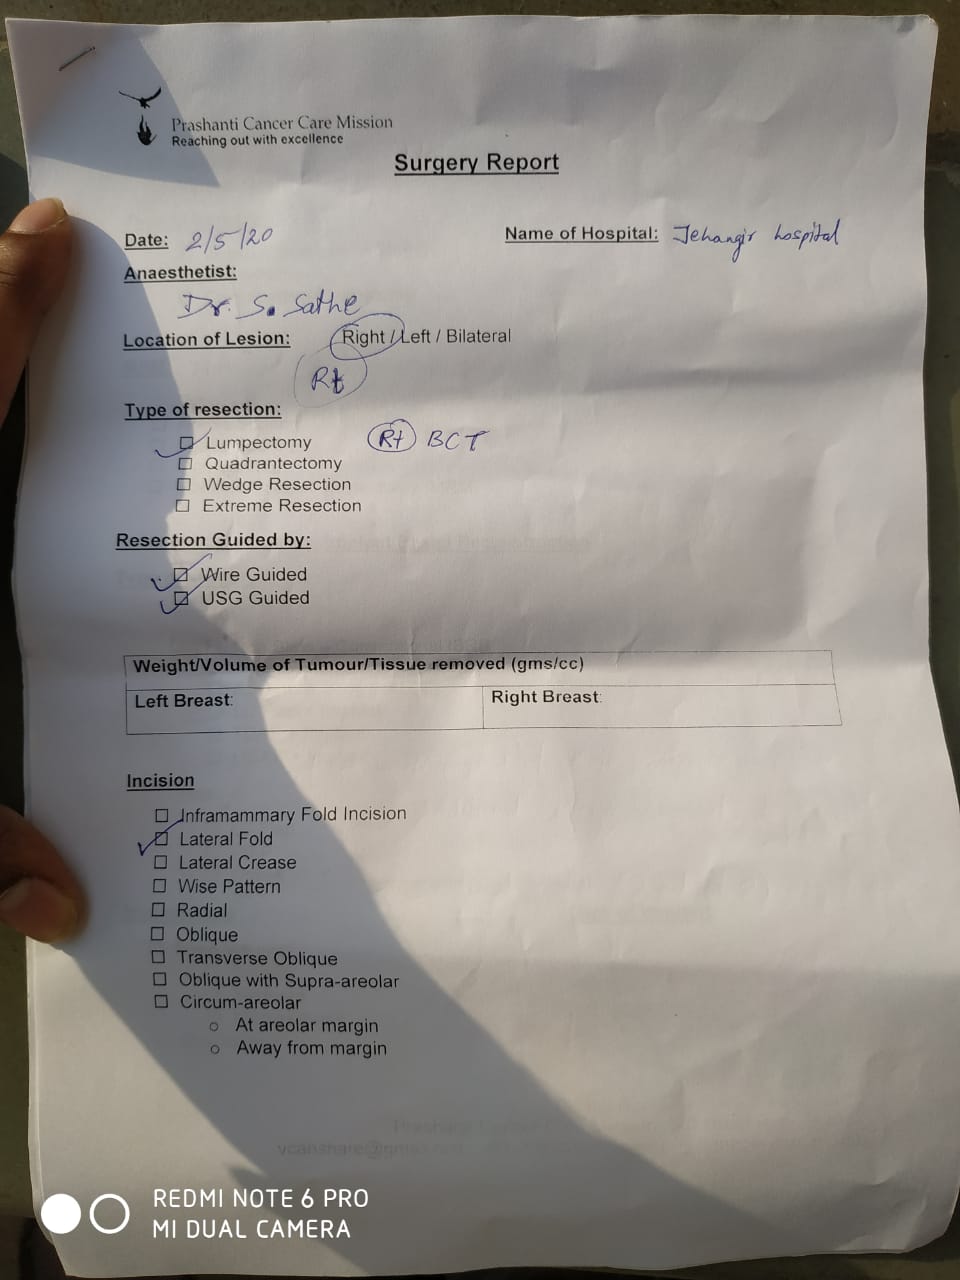 Prashanti Cancer Care Mission
Reaching out with excellence
Surgery Report
Date: 2/5/20 Name of Hospital: Jehangir hospital
Anaesthetist:
Dr. S. Sathe
Location of Lesion: Right / Left / Bilateral
Rt
Type of resection:
☐ Lumpectomy Rt BCT
☐ Quadrantectomy
☐ Wedge Resection
☐ Extreme Resection
Resection Guided by:
☐ Wire Guided
☐ USG Guided
Weight/Volume of Tumour/Tissue removed (gms/cc)
Left Breast: Right Breast:
Incision
☐ Inframammary Fold Incision
☐ Lateral Fold
☐ Lateral Crease
☐ Wise Pattern
☐ Radial
☐ Oblique
☐ Transverse Oblique
☐ Oblique with Supra-areolar
☐ Circum-areolar
○ At areolar margin
○ Away from margin
REDMI NOTE 6 PRO
MI DUAL CAMERA